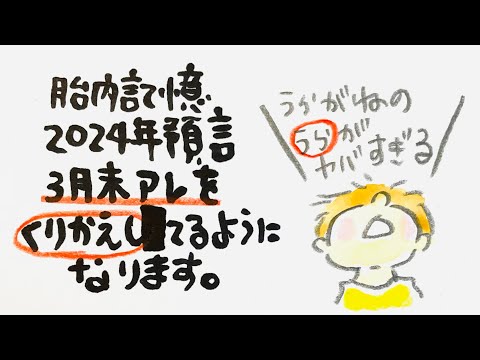 胎内記憶
2024年預言
3月末アレを
くりかえしてるように
なります。
うらがねの
うらが
ヤバすぎる